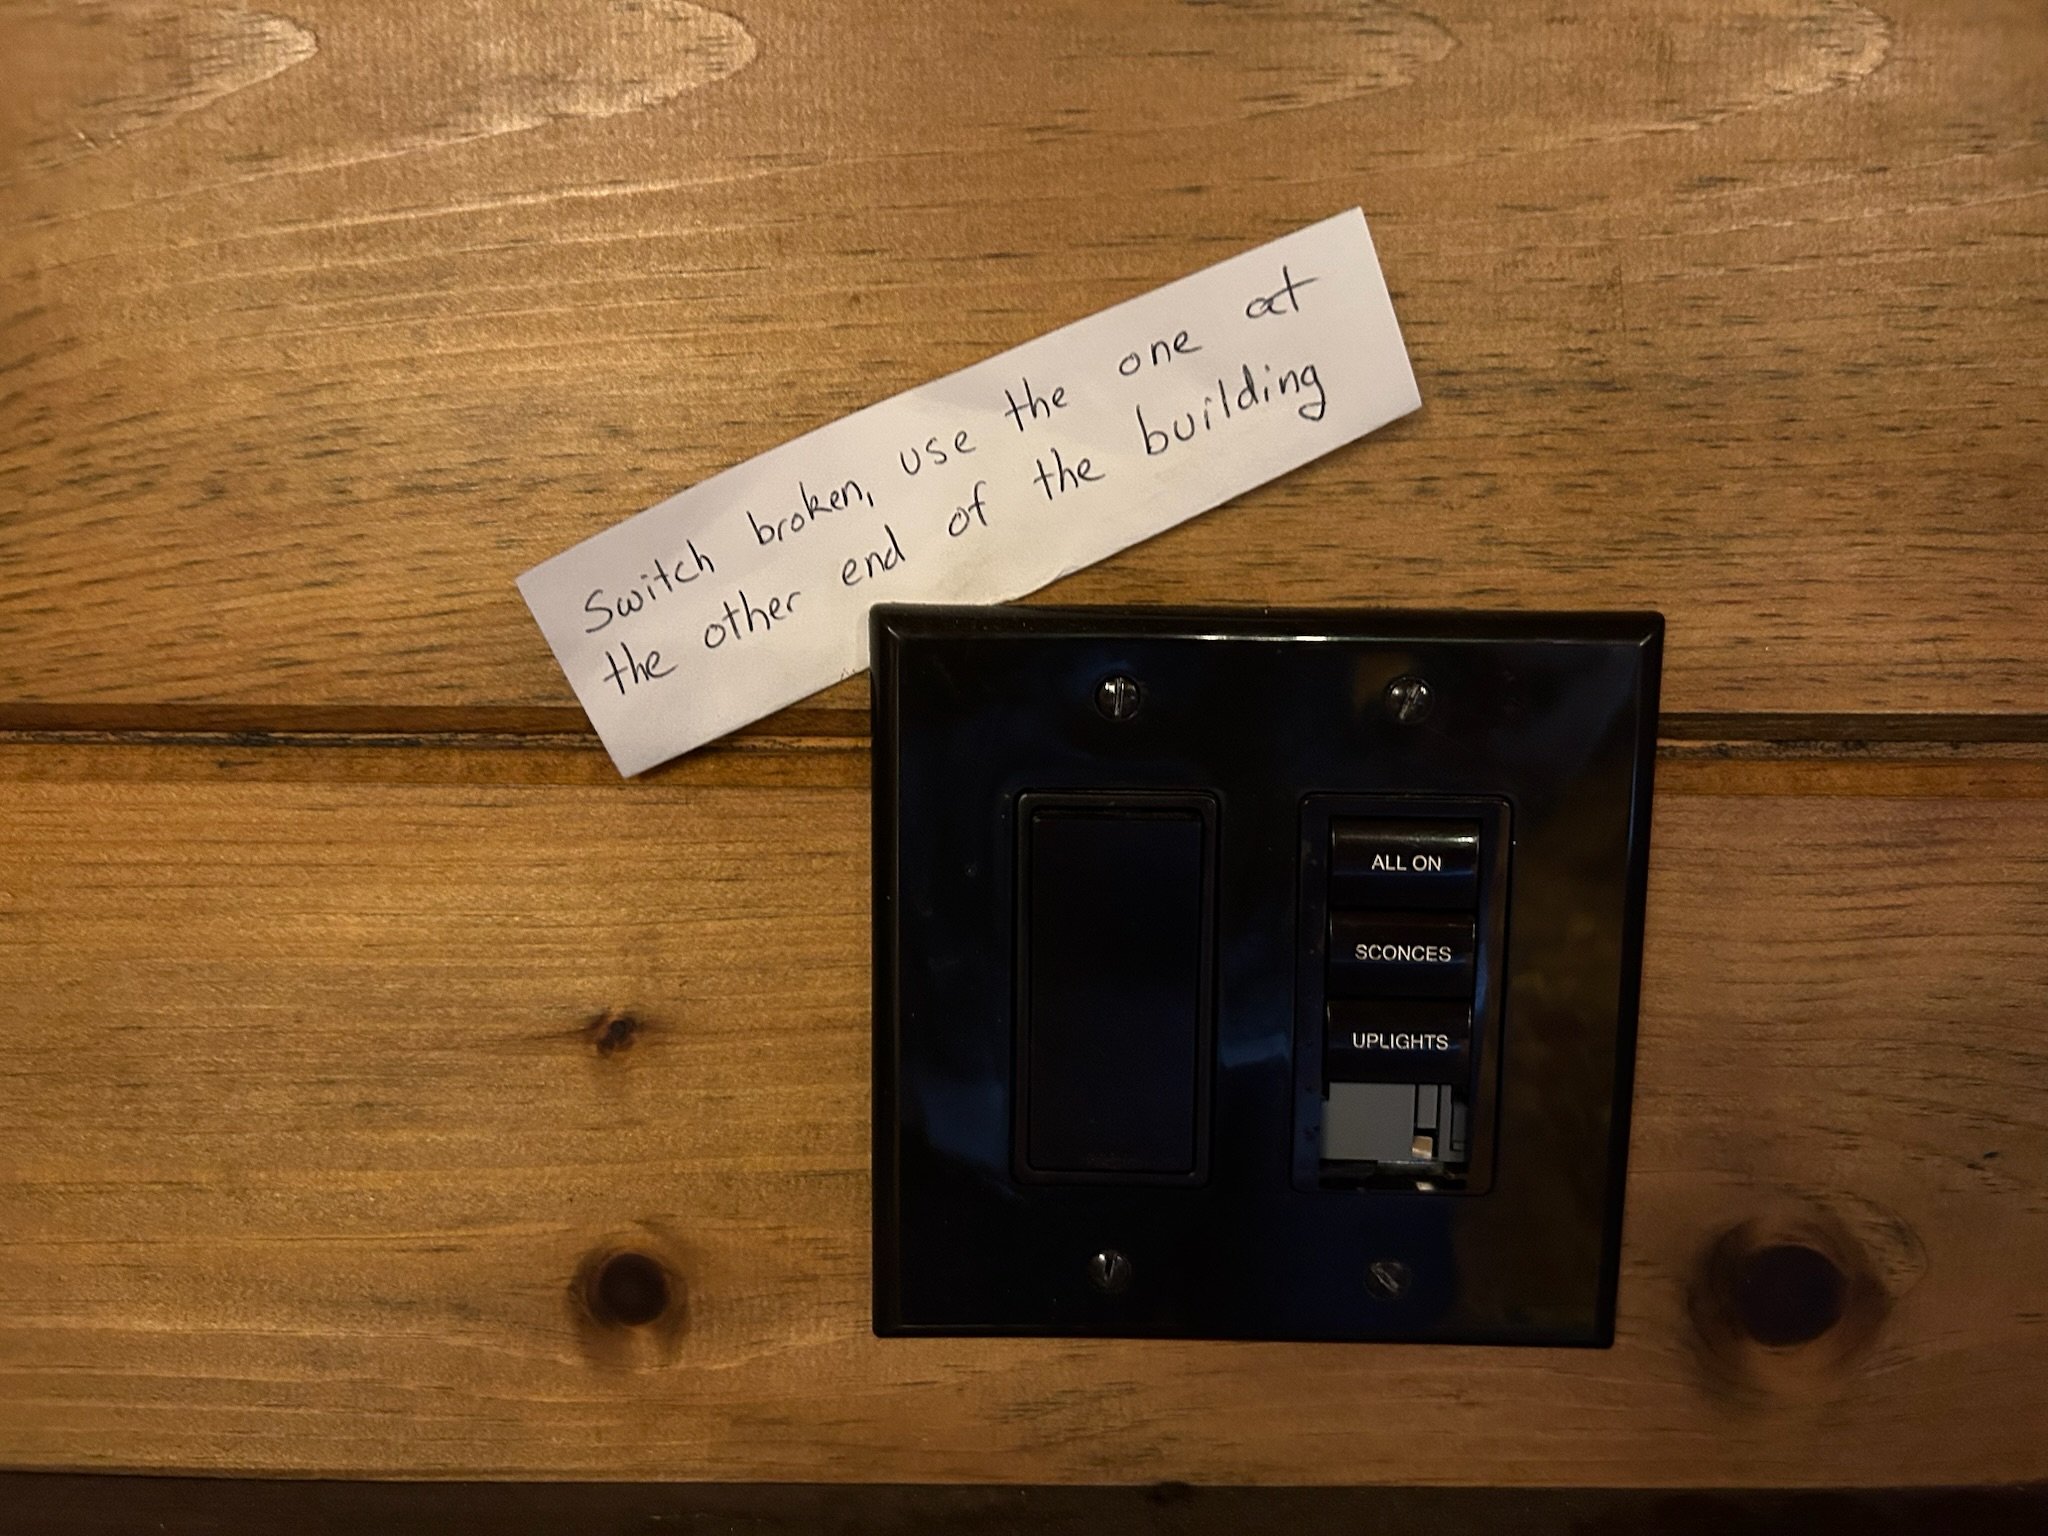 Switch broken, use the one at
the other end of the building
ALL ON
SCONCES
UPLIGHTS